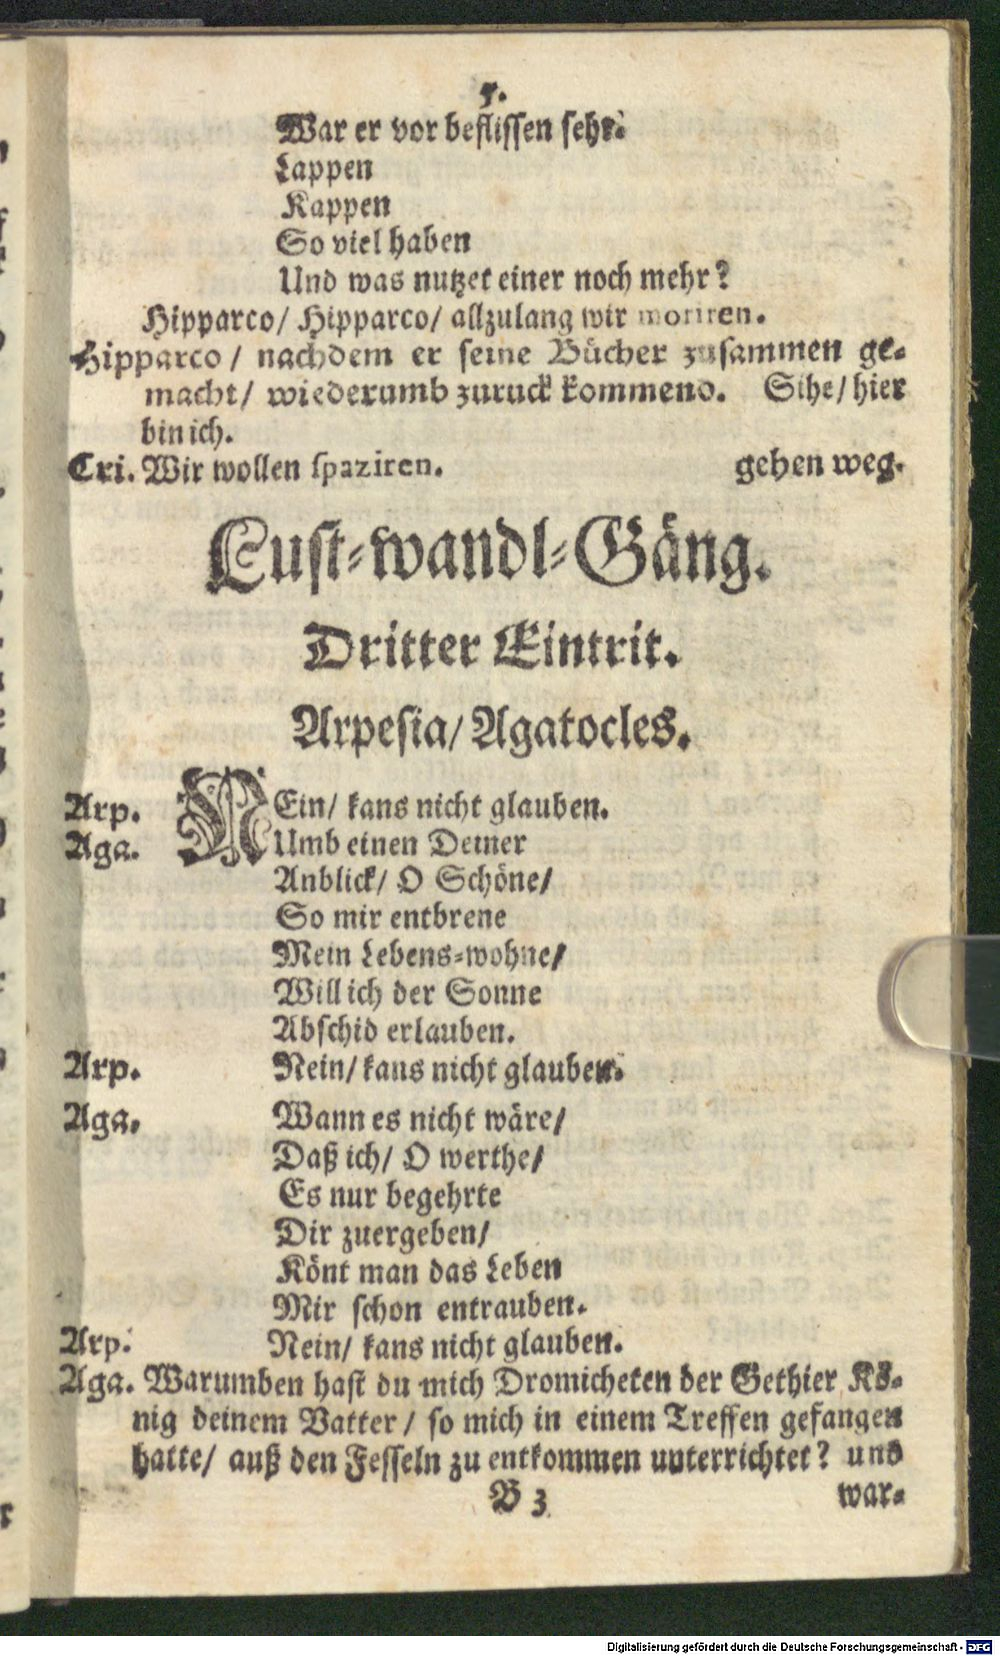 5.
War er vor beflissen sehr.
Lappen
Kappen
So viel haben
Und was nutzet einer noch mehr?
Hipparco/ Hipparco/ allzulang wir moriren.
Hipparco / nachdem er seine Bücher zusammen ge-
macht/ wiederumb zuruck kommend. Sihe/ hier
bin ich.
Cri. Wir wollen spaziren. gehen weg.
Lust-wandl-Gäng.
Dritter Eintrit.
Arpesia/ Agatocles.
Arp. NEin/ kans nicht glauben.
Aga. Umb einen Deiner
Anblick/ O Schöne/
So mir entbrene
Mein Lebens-wohne/
Will ich der Sonne
Abschid erlauben.
Arp. Nein/ kans nicht glauben.
Aga. Wann es nicht wäre/
Daß ich/ O werthe/
Es nur begehrte
Dir zuergeben/
Könt man das Leben
Mir schon entrauben.
Arp. Nein/ kans nicht glauben.
Aga. Warumben hast du mich Dromicheten der Gethier Kö-
nig deinem Vatter/ so mich in einem Treffen gefangen
hatte/ auß den Fesseln zu entkommen unterrichtet? und
B 3 war-
Digitalisierung gefördert durch die Deutsche Forschungsgemeinschaft - DFG